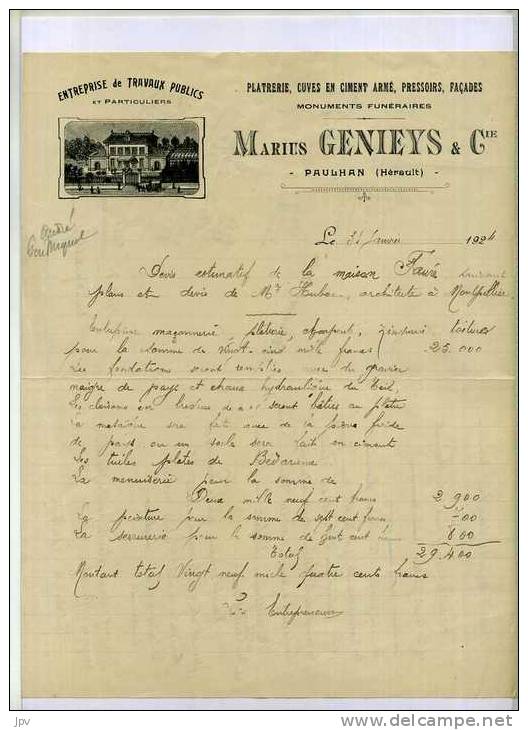 ENTREPRISE de TRAVAUX PUBLICS
ET PARTICULIERS
PLATRERIE, CUVES EN CIMENT ARMÉ, PRESSOIRS, FAÇADES
MONUMENTS FUNÉRAIRES
MARIUS GENIEYS & CIE
- PAULHAN (Hérault) -
André
Le 31 Janvier 1924
Devis estimatif de la maison Favre suivant
plans et devis de Mr architecte à Montpellier
Entreprise maçonnerie plâtrerie, charpente, zinguerie toitures
pour la somme de vingt cinq mille francs 25.000
Les fondations seront remplies avec du gravier
maigre de pays et chaux hydraulique du Teil,
Les cloisons en briques de seront bâties au plâtre
La sera fait avec de la pierre froide
de pays ou un socle sera fait en ciment
Les tuiles plates de Bédarieux
La menuiserie pour la somme de
Deux mille neuf cent francs 2 900
La peinture pour la somme de sept cent francs 700
La serrurerie pour la somme de huit cent 800
Total 29.400
Montant total Vingt neuf mille quatre cents francs
Entrepreneur
JPV www.delcampe.net